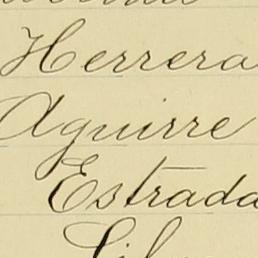 Herrera
Aguirre
Estrada